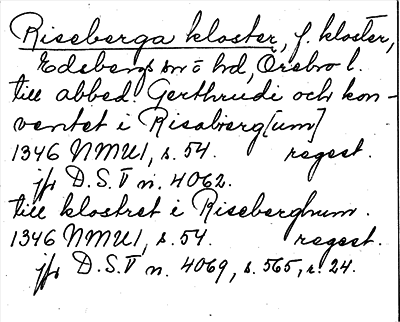 Riseberga kloster, f. kloster,
Edsbergs sn o hd, Örebro l.
till abbed. Gerthrudi och kon-
ventet i Risabierg[um]
1346 NMU1, s. 54. regest.
jfr D.S.V n. 4062.
till klostret i Riseberghum.
1346 NMU1, s. 54. regest.
jfr D.S.V n. 4069, s. 565, r. 24.